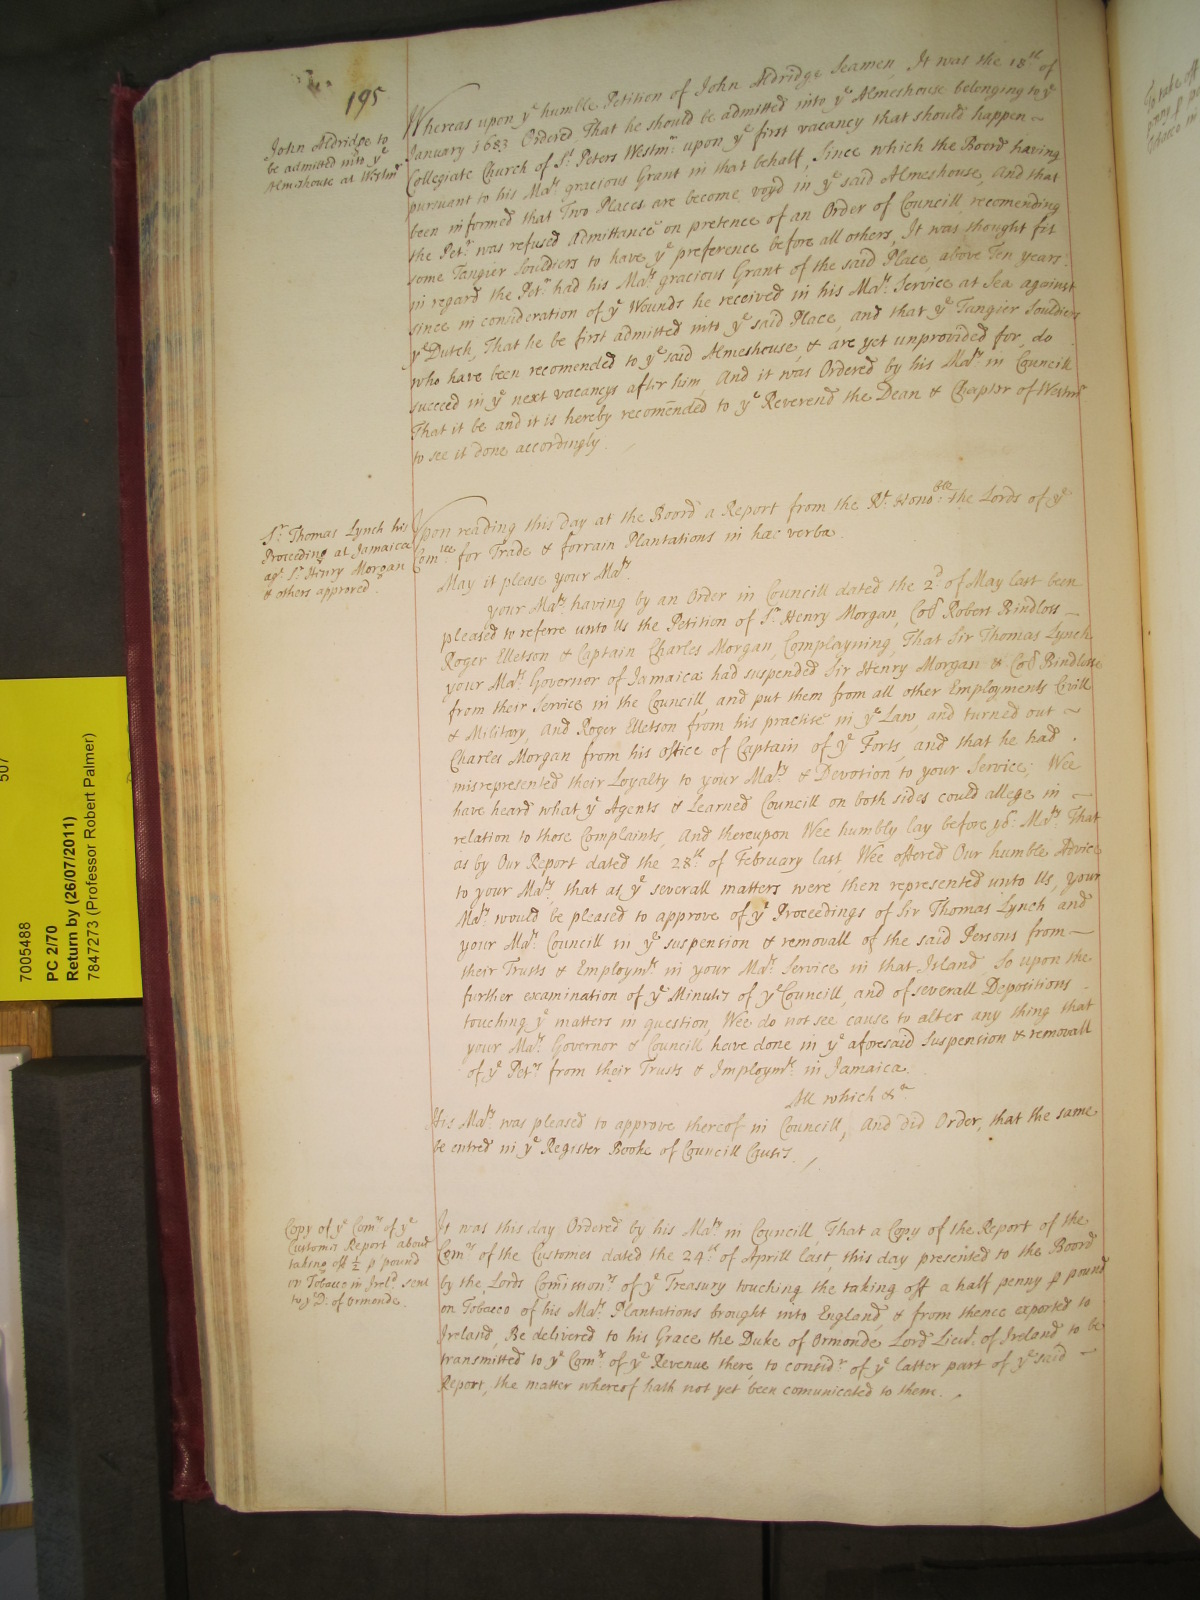 195
John Aldridge to
be admitted into yᵉ
Almshouse at Westmʳ
Whereas upon yᵉ humble Petition of John Aldridge Seamen, It was the 18ᵗʰ of
January 1683 Ordered That he should be admitted into yᵉ Almeshouse belonging to yᵉ
Collegiate Church of Sᵗ Peters Westmʳ: upon yᵉ first vacancy that should happen ~
pursuant to his Maᵗˢ gracious Grant in that behalf, Since which the Board having
been informed that Two Places are become voyd in yᵉ said Almeshouse, and that
the Petʳ was refused Admittance on pretence of an Order of Councill, recomending
some Tangier Souldiers to have yᵉ preference before all others, It was thought fit
in regard the Petʳ had his Maᵗˢ gracious Grant of the said Place, above Ten years
since in consideration of yᵉ Wounds he received in his Maᵗˢ Service at Sea against
yᵉ Dutch, That he be first admitted into yᵉ said Place, and that yᵉ Tangier Souldiers
who have been recomended to yᵉ said Almeshouse, & are yet unprovided for, do
succeed in yᵉ next vacancys after him, And it was Ordered by his Maᵗʸ in Councill
That it be and it is hereby recomended to yᵉ Reverend the Dean & Chapter of Westmʳ
to see it done accordingly.
Sʳ Thomas Lynch his
Proceeding at Jamaica
agᵗ Sʳ Henry Morgan
& others approved.
Upon reading this day at the Board a Report from the Rᵗ Honoᵇˡᵉ: the Lords of yᵉ
Comᵗᵉᵉ for Trade & forrain Plantations in hac verba
May it please your Maᵗʸ
your Maᵗʸ having by an Order in Councill dated the 2ᵈ of May last been
pleased to referre unto Us the Petition of Sʳ Henry Morgan, Coll Robert Bindloss —
Roger Elletson & Captain Charles Morgan, Complayning, That Sir Thomas Lynch
your Maᵗˢ Governor of Jamaica had suspended Sir Henry Morgan & Coll Bindlosse
from their Service in the Councill, and put them from all other Employments Civill
& Military, And Roger Elletson from his practise in yᵉ Law, and turned out ~
Charles Morgan from his office of Captain of yᵉ Forts, and that he had
misrepresented their Loyalty to your Maᵗʸ & Devotion to your Service; Wee
have heard what yᵉ Agents & Learned Councill on both sides could allege in ~
relation to those Complaints, And thereupon Wee humbly lay before yoʳ: Maᵗʸ That
as by Our Report dated the 28ᵗʰ of February last, Wee offered Our humble Advice
to your Maᵗʸ that as yᵉ severall matters were then represented unto Us, your
Maᵗʸ would be pleased to approve of yᵉ Proceedings of Sir Thomas Lynch and
your Maᵗˢ Councill in yᵉ suspension & removall of the said Persons from —
their Trusts & Employmᵗˢ in your Maᵗˢ Service in that Island, So upon the
further examination of yᵉ Minutes of yᵉ Councill, and of severall Depositions
touching yᵉ matters in question, Wee do not see cause to alter any thing that
your Maᵗˢ Governor & Councill have done in yᵉ aforesaid Suspension & removall
of yᵉ Petʳˢ from their Trusts & Imploymᵗˢ in Jamaica.
All which &ᶜᵃ
His Maᵗʸ was pleased to approve thereof in Councill, And did Order, that the same
be entred in yᵉ Register Booke of Councill Causes.
Copy of yᵉ Comʳˢ of yᵉ
Customes Report about
taking off ½ p pound
on Tobacco in Irelᵈ sent
to yᵉ D: of Ormonde.
It was this day Ordered by his Maᵗʸ in Councill, That a Copy of the Report of the
Comʳˢ of the Customes dated the 24ᵗʰ of Aprill last, this day presented to the Board
by the Lords Comissionʳˢ of yᵉ Treasury touching the taking off a half penny p pound
on Tobacco of his Maᵗˢ Plantations brought into England, & from thence exported to
Ireland, Be delivered to his Grace the Duke of Ormonde Lord Lieuᵗ of Ireland to be
transmitted to yᵉ Comʳˢ of yᵉ Revenue there, to considʳ of yᵉ latter part of yᵉ said ~
Report, the matter whereof hath not yet been comunicated to them.
To take off
peny p po
Tobacco in
507
7005488
PC 2/70
Return by (26/07/2011)
7847273 (Professor Robert Palmer)